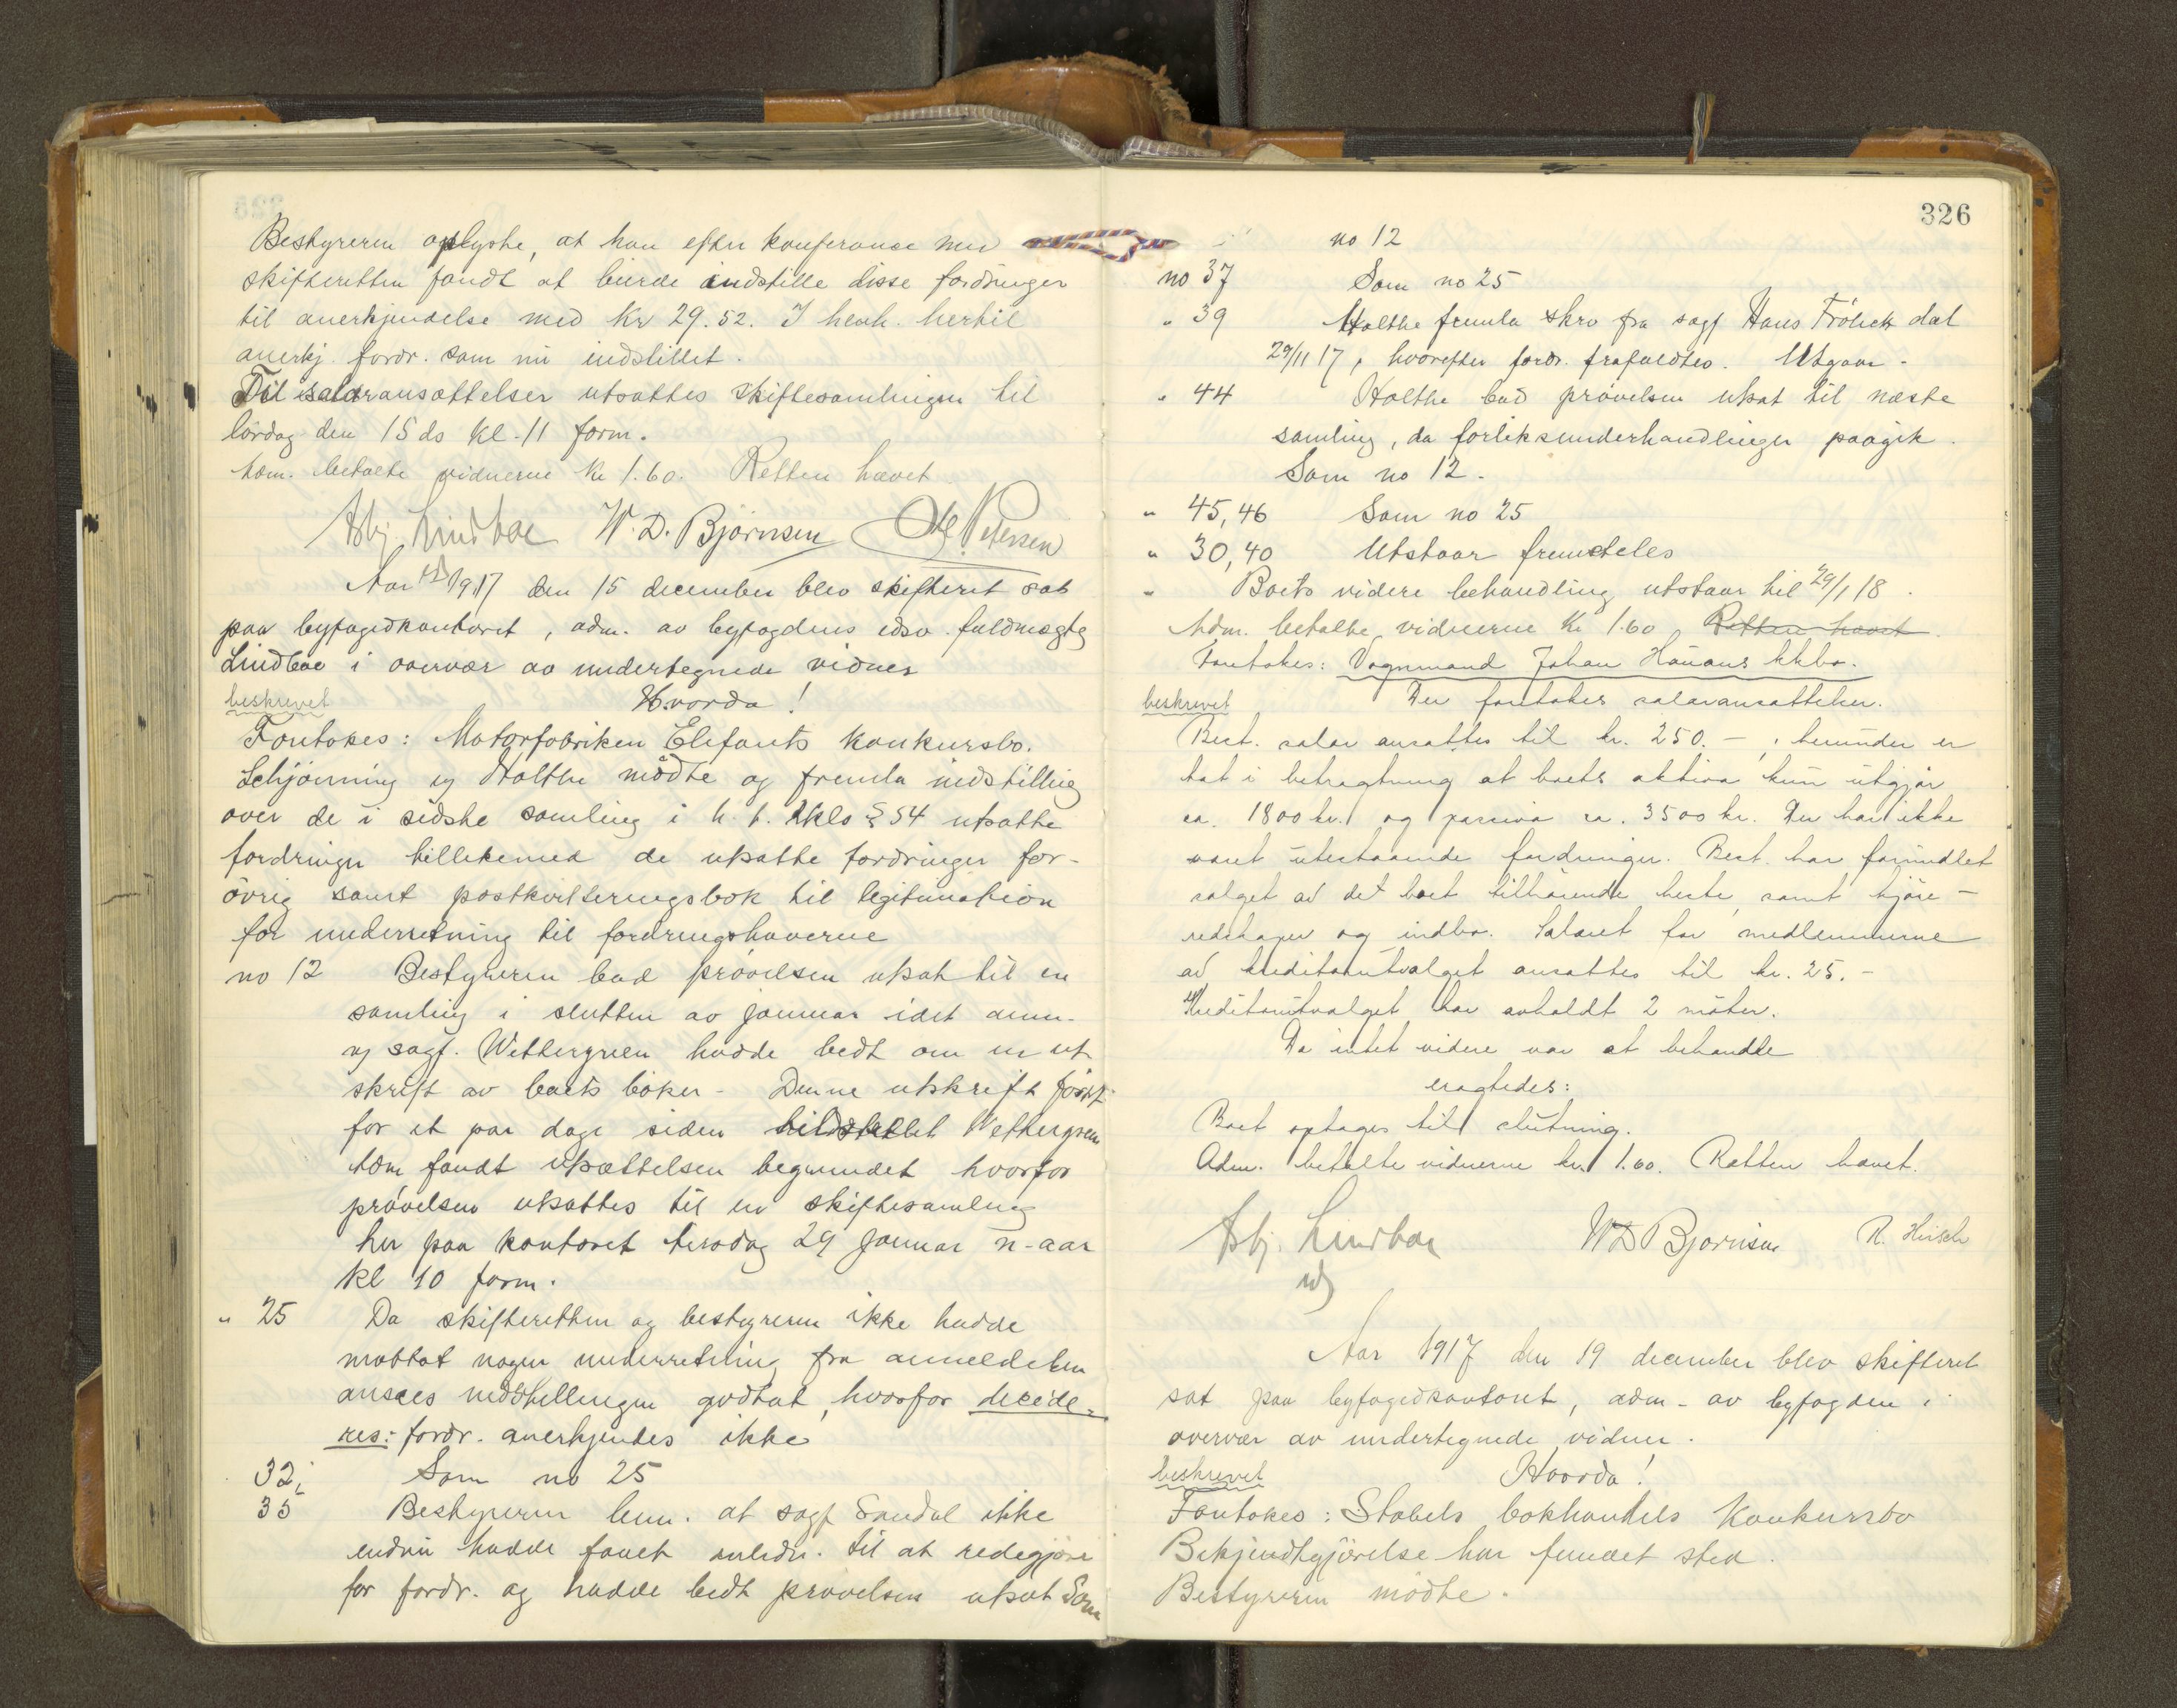 Bestyreren oplyste, at han efter konferance med
skifteretten fandt at burde indstille disse fordringer
til anerkjendelse med Kr 29.52. I henh. hertil
anerkj. fordr. som nu indstillet.
Til salæransættelser utsattes skiftesamlingen til
lørdag den 15 ds kl. 11 form.
Adm. betalte vidnerne Kr 1.60. Retten hævet
Asbj. Lindboe W. D. Bjørnsen Petersen
Aar 1917 den 15 december blev skifteret sat
paa byfogedkontoret, adm. av byfogdens edsv. fuldmægtig
Lindboe i overvær av undertegnede vidner
beskrevet Hvorda!
Foretokes: Motorfabriken Elefants konkursbo.
Schjønning og Holthe mødte og fremla indstilling
over de i sidste samling i h. t. kklo § 54 utsatte
fordringer tillikemed de utsatte fordringer for-
øvrig samt postkvitteringsbok til legitimation
for underretning til fordringshaverne
no 12 Bestyreren bad prøvelsen utsat til en
samling i slutten av januar idet anm.
og sagf. Wettergreen hadde bedt om en ut
skrift av boets bøker - Denne utskrift først
for et par dage siden tilstillet Wettergreen
Adm fandt utsættelsen begrundet hvorfor
prøvelsen utsattes til en skiftesamling
her paa kontoret tirsdag 29 januar n-aar
kl 10 form.
" 25 Da skifteretten og bestyreren ikke hadde
mottat nogen underretning fra anmelderen
ansees nedstillingen godtat, hvorfor decide-
res: fordr. anerkjendes ikke
32, Som no 25
35 Bestyreren bem. at sagf Sandal ikke
endnu hadde faaet anledn. til at redegjøre
for fordr. og hadde bedt prøvelsen utsat Som
326
no 12
no 37 Som no 25
" 39 Holthe fremla skrv fra sagf Hans Frölich dat
29/11 17, hvorefter fordr. frafaldtes. Utgaar -
" 44 Holthe bad prøvelsen utsat til næste
samling, da forliksunderhandlinger paagik.
Som no 12.
" 45, 46 Som no 25
" 30, 40 Utstaar fremdeles
" Boets videre behandling utstaar til 29/1 18.
Adm. betalte vidnerne Kr 1.60 Retten hævet.
Foretokes: Vognmand Johan Hauans kkbo.
beskrevet Der foretokes salæransættelser.
Best. salær ansattes til kr. 250.-, herunder er
tat i betragtning at boets aktiva kun utgjør
ca. 1800 kr. og passiva ca. 3500 kr. Der har ikke
været utestaaende fordringer. Best. har formidlet
salget av det boet tilhørende heste, samt kjøre-
redskaper og indbo. Salæret for medlemmerne
av kreditorutvalget ansattes til kr. 25.-
Kreditorutvalget har avholdt 2 møter.
Da intet videre var at behandle
eragtedes:
Boet optages til slutning.
Adm. betalte vidnerne kr. 1.60. Retten hævet.
Asbj. Lindboe W D Bjørnsen R. Hirsch
Aar 1917 den 19 december blev skifteret
sat paa byfogedkontoret, adm - av byfogden i
overvær av undertegnede vidner.
beskrevet Hvorda!
Foretokes: Stabels bokhandels Konkursbo
Bekjendtgjørelse har fundet sted.
Bestyreren mødte.